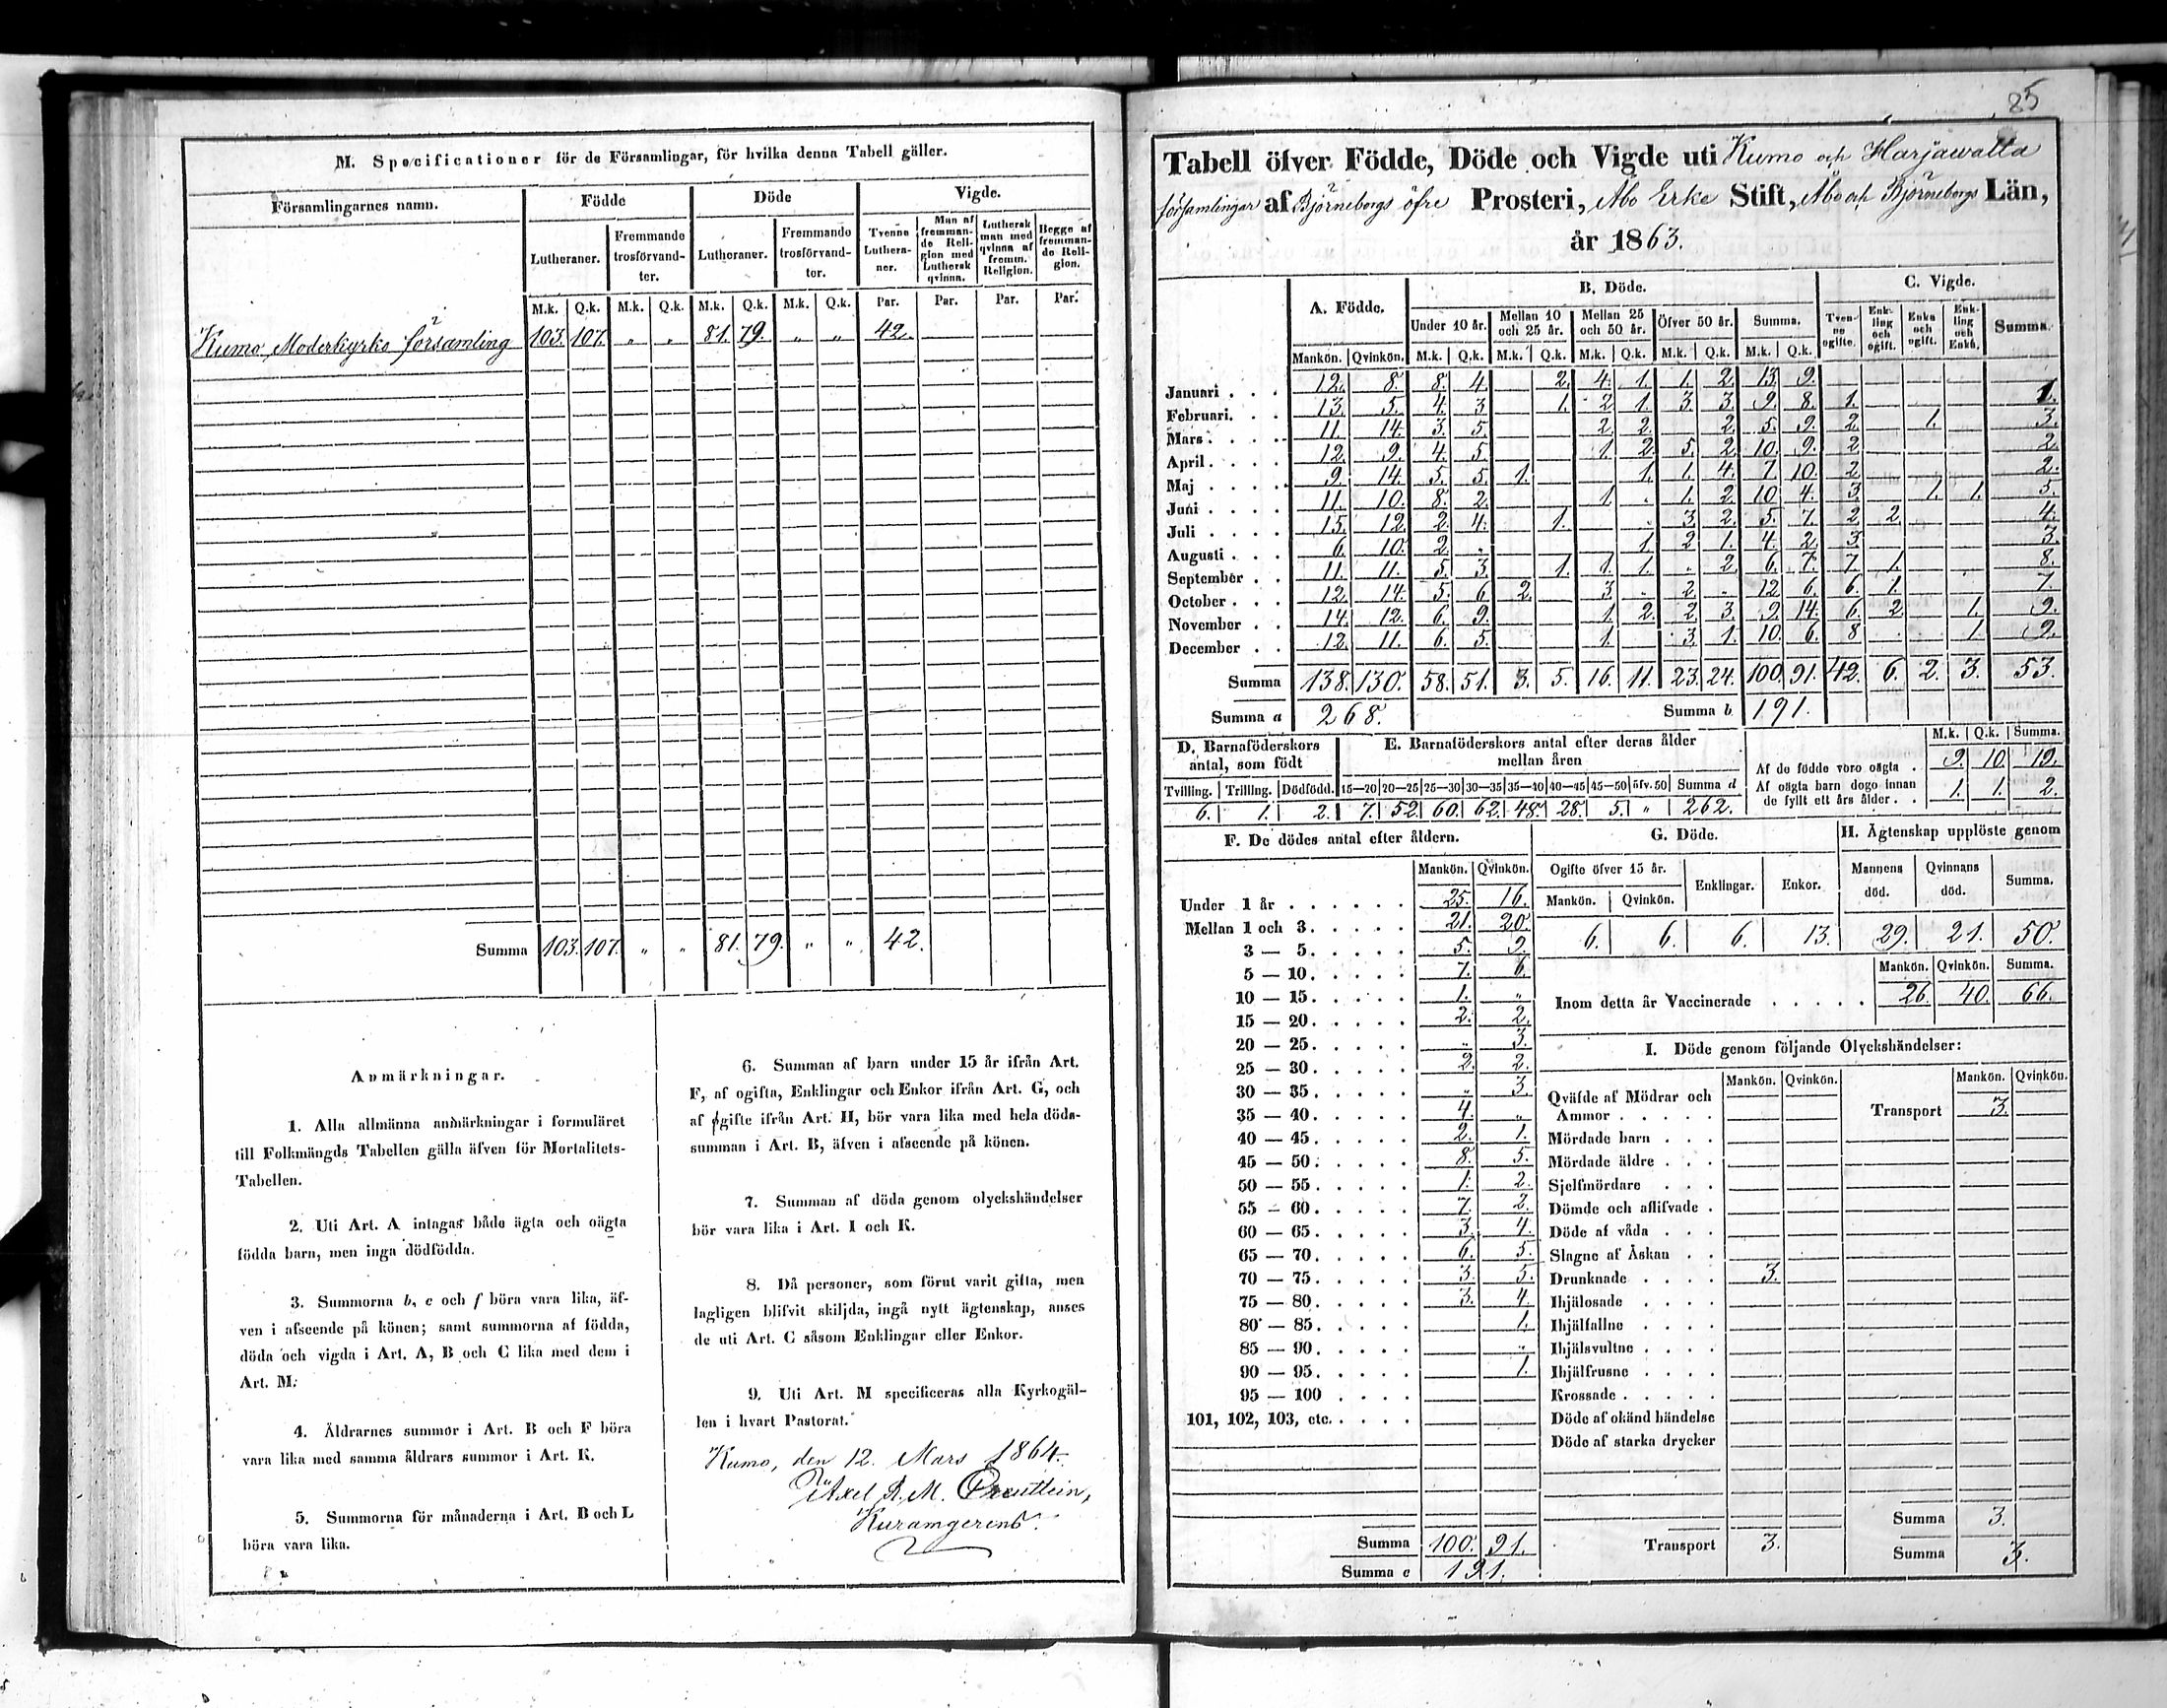 M. Specificationer för de Församlingar, för hvilka denna Tabell gäller.
Församlingarnes namn. Födde Döde Vigde.
Lutheraner. Fremmande trosförvandter. Lutheraner. Fremmande trosförvandter. Tvenne Lutheraner. Man af fremmande Religion med Luthersk qvinna. Luthersk man med qvinna af fremm. Religion. Begge af fremmande Religion.
M.k. Q.k. M.k. Q.k. M.k. Q.k. M.k. Q.k. Par. Par. Par. Par.
Kumo Moderkyrko församling 103. 107. " " 81. 79. " " 42.
Summa 103. 107. " " 81. 79. " " 42.
Anmärkningar.
1. Alla allmänna anmärkningar i formuläret
till Folkmängds Tabellen gälla äfven för Mortalitets-
Tabellen.
2. Uti Art. A intagas både ägta och oägta
födda barn, men inga dödfödda.
3. Summorna b, c och f böra vara lika, äf-
ven i afseende på könen; samt summorna af födda,
döda och vigda i Art. A, B och C lika med dem i
Art. M.
4. Åldrarnes summor i Art. B och F böra
vara lika med samma åldrars summor i Art. K.
5. Summorna för månaderna i Art. B och L
böra vara lika.
6. Summan af barn under 15 år ifrån Art.
F, af ogifta, Enklingar och Enkor ifrån Art. G, och
af gifte ifrån Art. H, bör vara lika med hela döds-
summan i Art. B, äfven i afseende på könen.
7. Summan af döda genom olyckshändelser
bör vara lika i Art. I och K.
8. Då personer, som förut varit gifta, men
lagligen blifvit skiljda, ingå nytt ägtenskap, anses
de uti Art. C såsom Enklingar eller Enkor.
9. Uti Art. M specificeras alla Kyrkogäl-
len i hvart Pastorat.
Kumo, den 12. Mars 1864.
Axel R. M.
85
Tabell öfver Födde, Döde och Vigde uti Kumo och Harjawalta
församlingar af Björneborgs öfre Prosteri, Åbo Erke Stift, Åbo och Björneborgs Län,
år 1863.
A. Födde. B. Döde. C. Vigde.
Under 10 år. Mellan 10 och 25 år. Mellan 25 och 50 år. Öfver 50 år. Summa. Tvenne ogifte. Enkling och ogift. Enka och ogift. Enkling och Enka. Summa.
Mankön. Qvinkön. M.k. Q.k. M.k. Q.k. M.k. Q.k. M.k. Q.k. M.k. Q.k.
Januari . . . 12. 8. 8. 4. 2. 4. 1. 1. 2. 13. 9.
Februari. . . 13. 5. 4. 3 1. 2 1. 3. 3. 9. 8. 1. 1.
Mars . . . . 11. 14. 3. 5. 2. 2. 2. 5. 9. 2. 1. 3.
April. . . . 12. 9. 4. 5. 1. 2. 5. 2. 10. 9. 2 2.
Maj . . . . 9. 14. 5. 5. 1. 1. 1. 4. 7. 10. 2 2.
Juni . . . . 11. 10. 8. 2. 1. . 1. 2. 10 4. 3. 1. 1. 5.
Juli . . . . 15. 12. 2. 4. 1. . 3. 2. 5. 7. 2. 2. 4.
Augusti . . . 6. 10. 2. . 1. 2 1. 4. 2. 3. 3.
September . . 11. 11. 5. 3. 1. 1. 1. . 2. 6. 7. 7. 1. 8.
October . . . 12. 14. 5. 6. 2. 3 . 2. . 12. 6. 6. 1. 7.
November . . 14. 12. 6. 9. 1. 2. 2. 3. 9. 14. 6. 2. 1. 9.
December . . 12. 11. 6. 5. 1. 3. 1. 10. 6. 8 . . 1. 9.
Summa 138. 130. 58. 51. 3. 5. 16. 11. 23. 24. 100. 91. 42. 6. 2. 3. 53.
Summa a 268. Summa b 191.
D. Barnaföderskors antal, som födt
Tvilling. Trilling. Dödfödd.
6. 1. 2.
E. Barnaföderskors antal efter deras ålder mellan åren
15—20 20—25 25—30 30—35 35—40 40—45 45—50 öfv. 50 Summa d
7. 52. 60. 62. 48. 28. 5. " 262.
M.k. Q.k. Summa.
Af de födde voro oägta . 9. 10. 19.
Af oägta barn dogo innan de fyllt ett års ålder . . 1. 1. 2.
F. De dödes antal efter åldern.
Mankön. Qvinkön.
Under 1 år . . . . . . 25. 16.
Mellan 1 och 3. . . . . 21. 20.
3 — 5. . . . . 5. 9.
5 — 10. . . . . 7. 6.
10 — 15. . . . . 1. "
15 — 20. . . . . 2. 2.
20 — 25. . . . . " 3.
25 — 30. . . . . 2. 2.
30 — 35. . . . . " 3.
35 — 40. . . . . 4. "
40 — 45. . . . . 2. 1.
45 — 50. . . . . 8. 5.
50 — 55. . . . . 1. 2.
55 — 60. . . . . 7. 2.
60 — 65. . . . . 3. 4.
65 — 70. . . . . 6. 5.
70 — 75. . . . . 3. 5.
75 — 80. . . . . 3. 4.
80 — 85. . . . . 1.
85 — 90. . . . . "
90 — 95. . . . . 1.
95 — 100 . . . .
101, 102, 103, etc. . . . .
Summa 100. 91.
Summa c 191.
G. Döde.
Ogifte öfver 15 år. Enklingar. Enkor.
Mankön. Qvinkön.
6. 6. 6. 13.
H. Ägtenskap upplöste genom
Mannens död. Qvinnans död. Summa.
29. 21. 50.
Mankön. Qvinkön. Summa.
Inom detta år Vaccinerade . . . . . 26. 40. 66.
I. Döde genom följande Olyckshändelser:
Mankön. Qvinkön. Mankön. Qvinkön.
Qväfde af Mödrar och
Ammor . . . . . Transport 3.
Mördade barn . . .
Mördade äldre . . .
Sjelfmördare . . .
Dömde och aflifvade .
Döde af våda . . .
Slagne af Åskan . .
Drunknade . . . . 3.
Ihjälosade . . . .
Ihjälfallne . . . .
Ihjälsvultne . . . .
Ihjälfrusne . . . .
Krossade . . . . .
Döde af okänd händelse
Döde af starka drycker
Summa 3.
Transport 3. Summa 3.